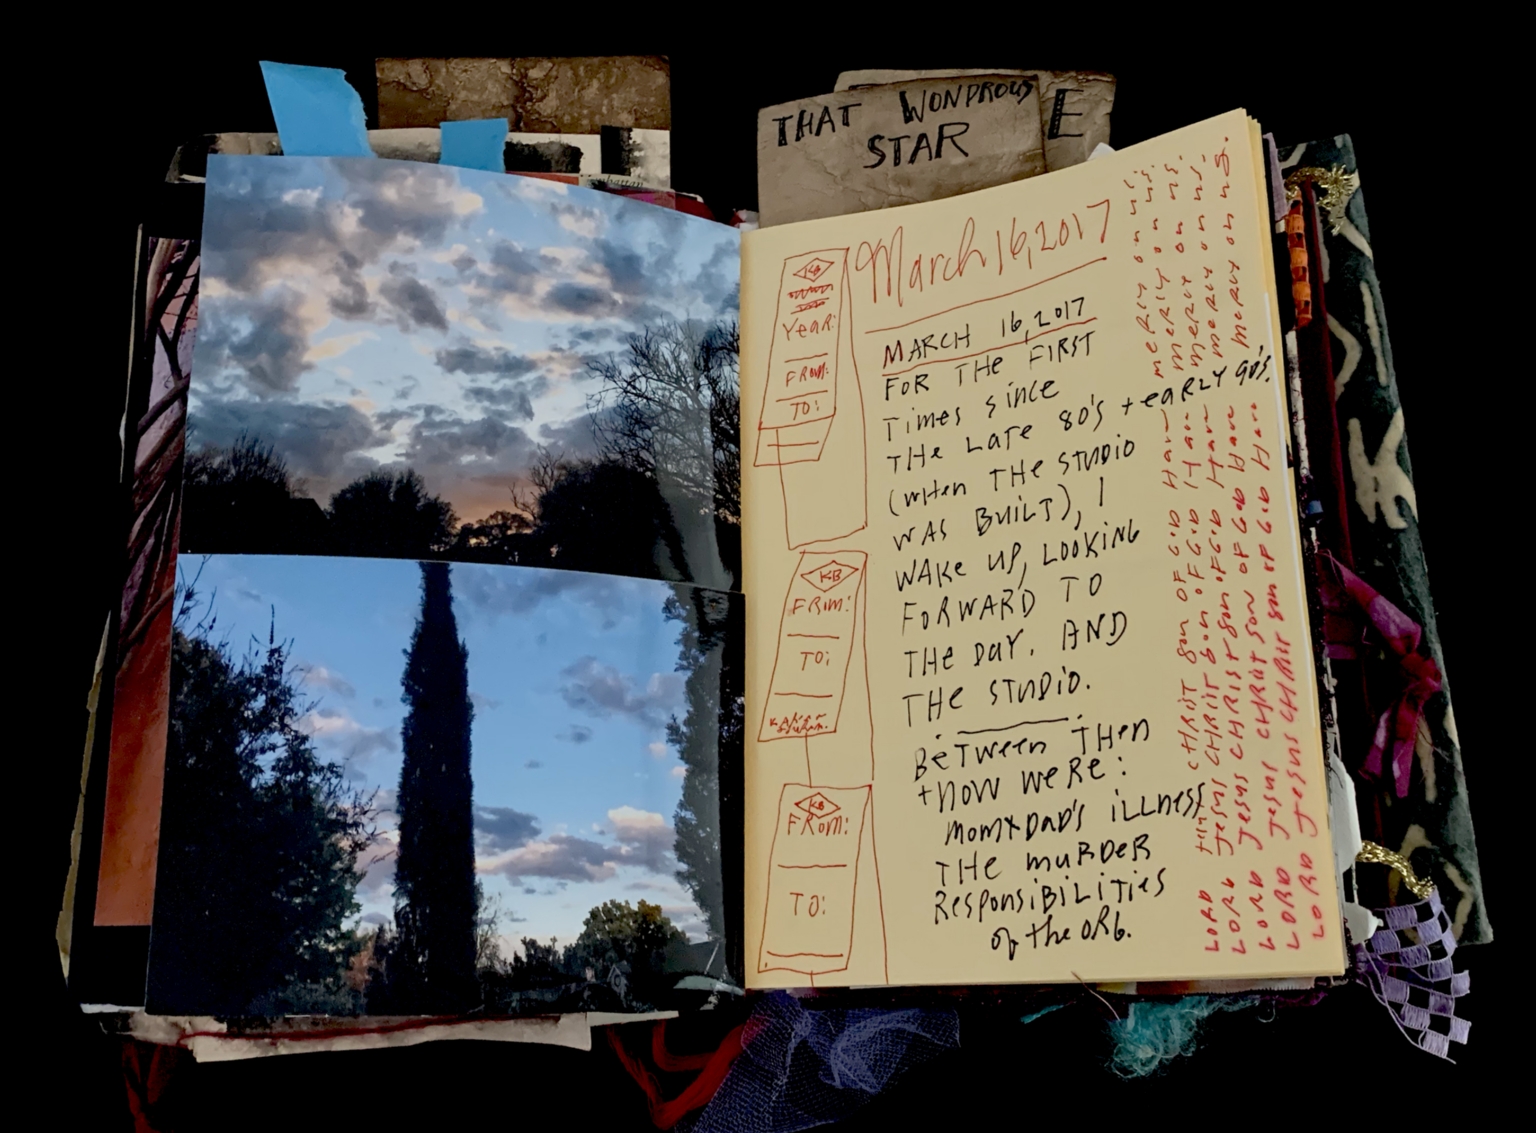 THAT WONDROUS
STAR
E
March 16, 2017
KB
YEAR:
FROM:
TO:
KB
FROM:
TO:
KB
FROM:
TO:
MARCH 16, 2017
FOR THE FIRST
TIMES SINCE
THE LATE 80'S + EARLY 90'S.
(WHEN THE STUDIO
WAS BUILT), I
WAKE UP, LOOKING
FORWARD TO
THE DAY. AND
THE STUDIO.
BETWEEN THEN
+ NOW WERE:
MOM + DAD'S ILLNESS
THE MURDER
RESPONSIBILITIES
of the ORB.
LORD JESUS CHRIST SON OF GOD HAVE MERCY ON US.
LORD JESUS CHRIST SON OF GOD HAVE MERCY ON US.
LORD JESUS CHRIST SON OF GOD HAVE MERCY ON US.
LORD JESUS CHRIST SON OF GOD HAVE MERCY ON US.
LORD JESUS CHRIST SON OF GOD HAVE MERCY ON US.